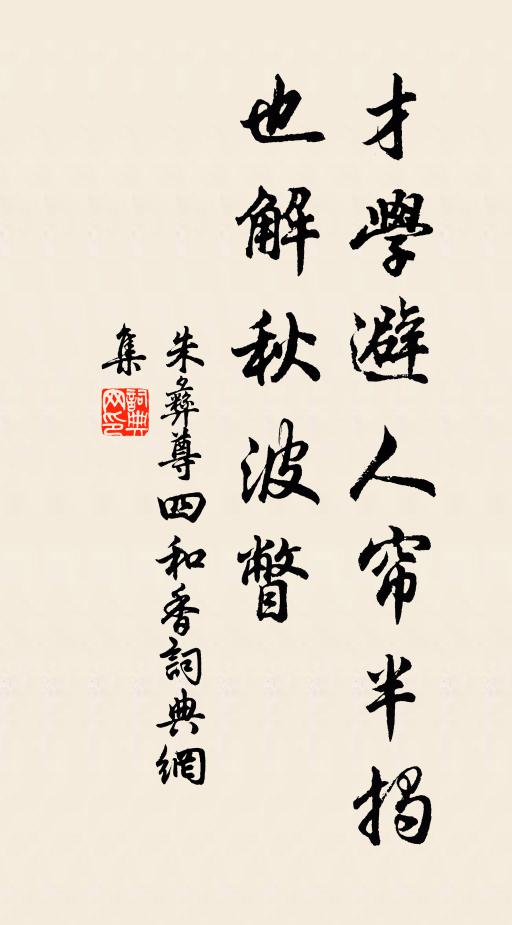 才學避人帘半揭
也解秋波瞥
朱彝尊四和香詞典網
集
詞典
网印